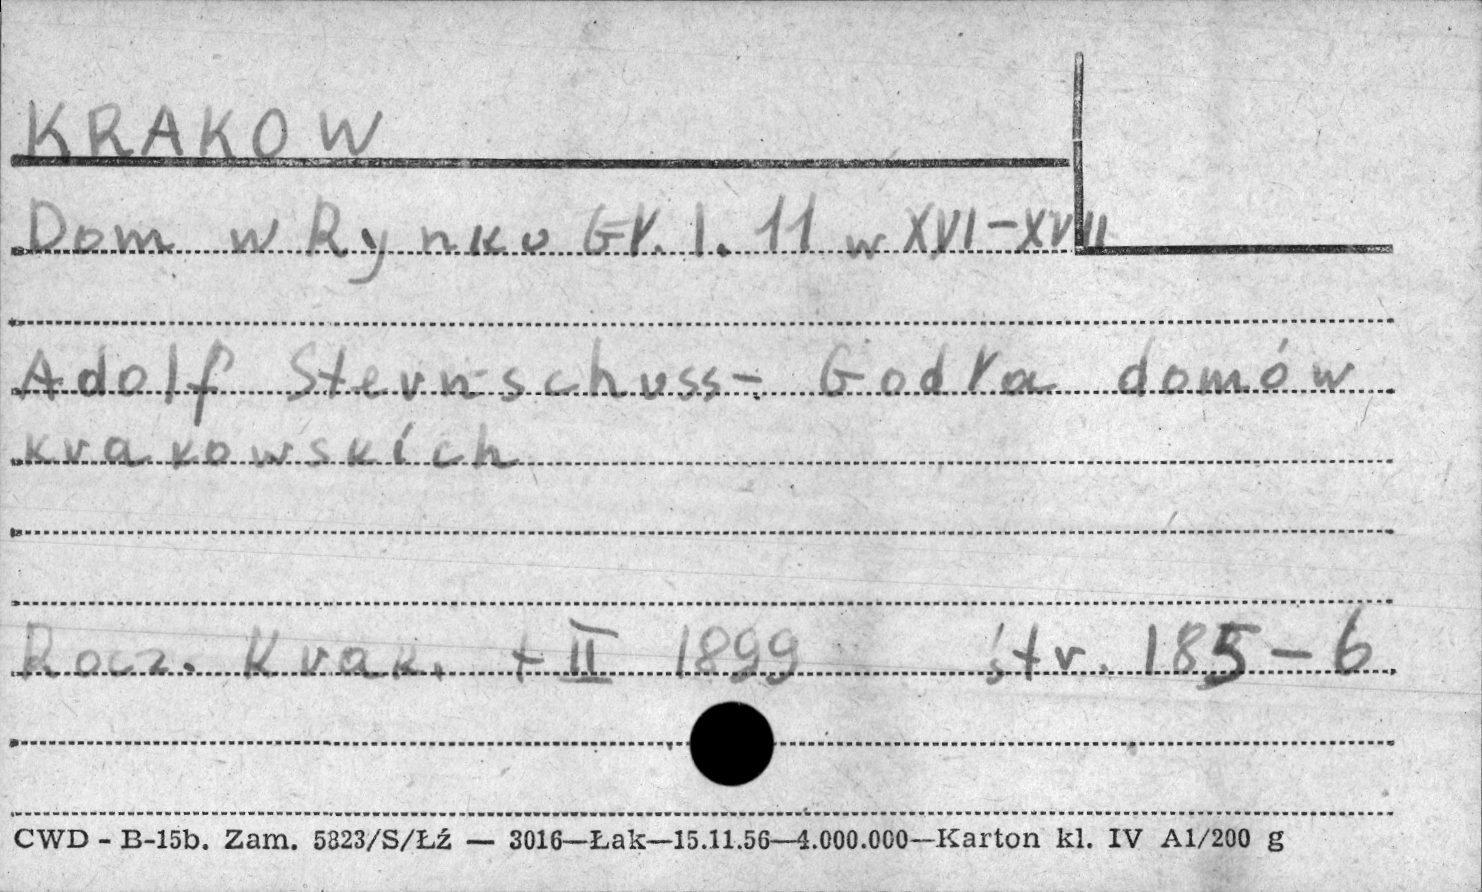 KRAKOW
Dom w Rynku Gł. l. 11 w XVI-XVII
Adolf Sternschuss - Godła domów
krakowskich
Rocz. Krak. t II 1899 str. 185-6
CWD - B-15b. Zam. 5823/S/Łź — 3016—Łak—15.11.56—4.000.000—Karton kl. IV A1/200 g